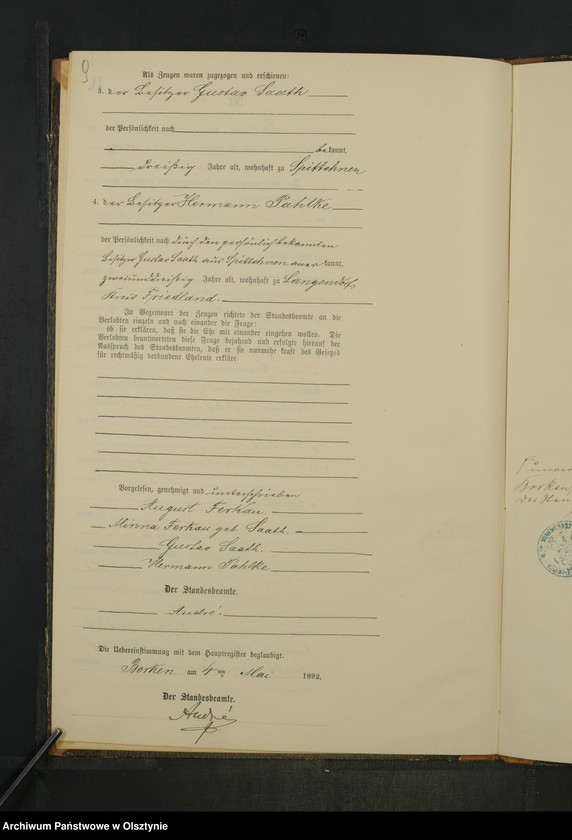 9
Als Zeugen waren zugezogen und erschienen:
3. der Besitzer Gustav Saath
der Persönlichkeit nach
bekannt,
dreißig Jahre alt, wohnhaft zu Spittehnen
4. der Besitzer Hermann Pahlke
der Persönlichkeit nach durch den persönlich bekannten
Besitzer Gustav Saath aus Spittehnen anerkannt,
zweiunddreißig Jahre alt, wohnhaft zu Langendorf,
Kreis Friedland.
In Gegenwart der Zeugen richtete der Standesbeamte an die
Verlobten einzeln und nach einander die Frage:
ob sie erklären, daß sie die Ehe mit einander eingehen wollen. Die
Verlobten beantworteten diese Frage bejahend und erfolgte hierauf der
Ausspruch des Standesbeamten, daß er sie nunmehr kraft des Gesetzes
für rechtmäßig verbundene Eheleute erkläre.
Vorgelesen, genehmigt und unterschrieben
August Ferkau.
Minna Ferkau geb. Saath.
Gustav Saath.
Hermann Pahlke
Der Standesbeamte.
André.
Die Uebereinstimmung mit dem Hauptregister beglaubigt.
Borken am 4ten Mai 1892.
Der Standesbeamte.
André
Borken,
Archiwum Państwowe w Olsztynie